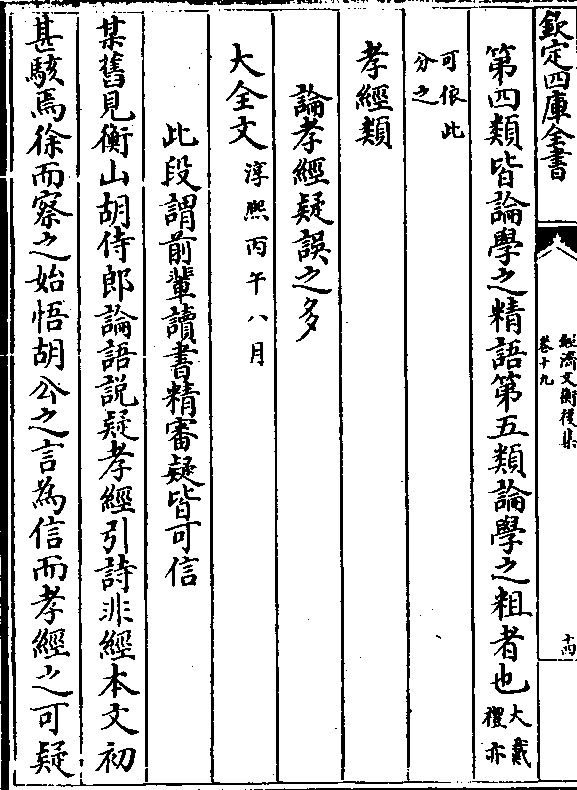 欽定四庫全書
經濟文衡後集
卷十九
十四
第四類皆論學之精語第五類論學之粗者也大戴禮亦
可依此分之
孝經類
論孝經疑誤之多
大全文淳熙丙午八月
此段謂前輩讀書精審疑皆可信
某舊見衡山胡侍郎論語說疑孝經引詩非經本文初
甚駭焉徐而察之始悟胡公之言為信而孝經之可疑